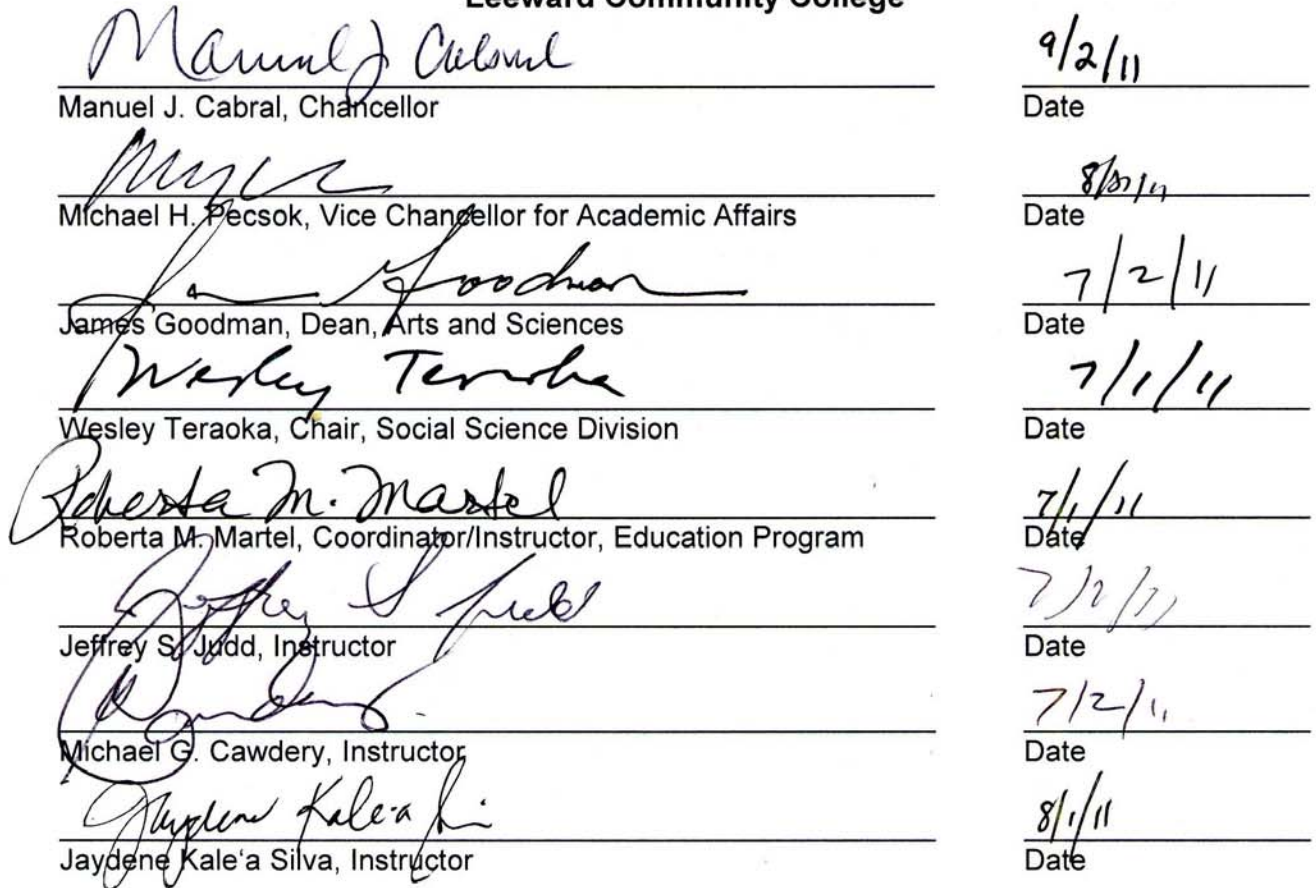 Leeward Community College
Manuel J Cabral 9/2/11
Manuel J. Cabral, Chancellor Date
Michael H. Pecsok, Vice Chancellor for Academic Affairs Date
James Goodman 7/2/11
James Goodman, Dean, Arts and Sciences Date
Wesley Teraoka 7/1/11
Wesley Teraoka, Chair, Social Science Division Date
Roberta M. Martel 7/1/11
Roberta M. Martel, Coordinator/Instructor, Education Program Date
Jeffrey S Judd 7/2/11
Jeffrey S. Judd, Instructor Date
7/2/11
Michael G. Cawdery, Instructor Date
Jaydene Kale'a 8/1/11
Jaydene Kale‘a Silva, Instructor Date